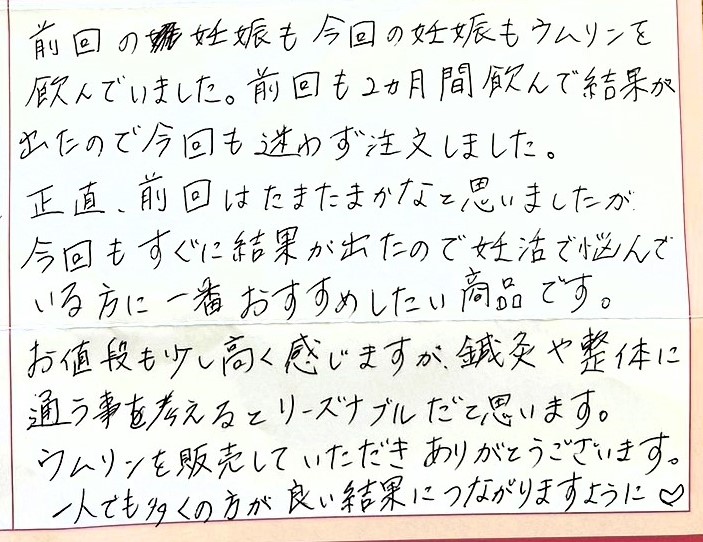 前回の妊娠も今回の妊娠もウムリンを
飲んでいました。前回も2ヵ月間飲んで結果が
出たので今回も迷わず注文しました。
正直、前回はたまたまかなと思いましたが
今回もすぐに結果が出たので妊活で悩んで
いる方に一番おすすめしたい商品です。
お値段も少し高く感じますが、鍼灸や整体に
通う事を考えるとリーズナブルだと思います。
ウムリンを販売していただきありがとうございます。
一人でも多くの方が良い結果につながりますように♡